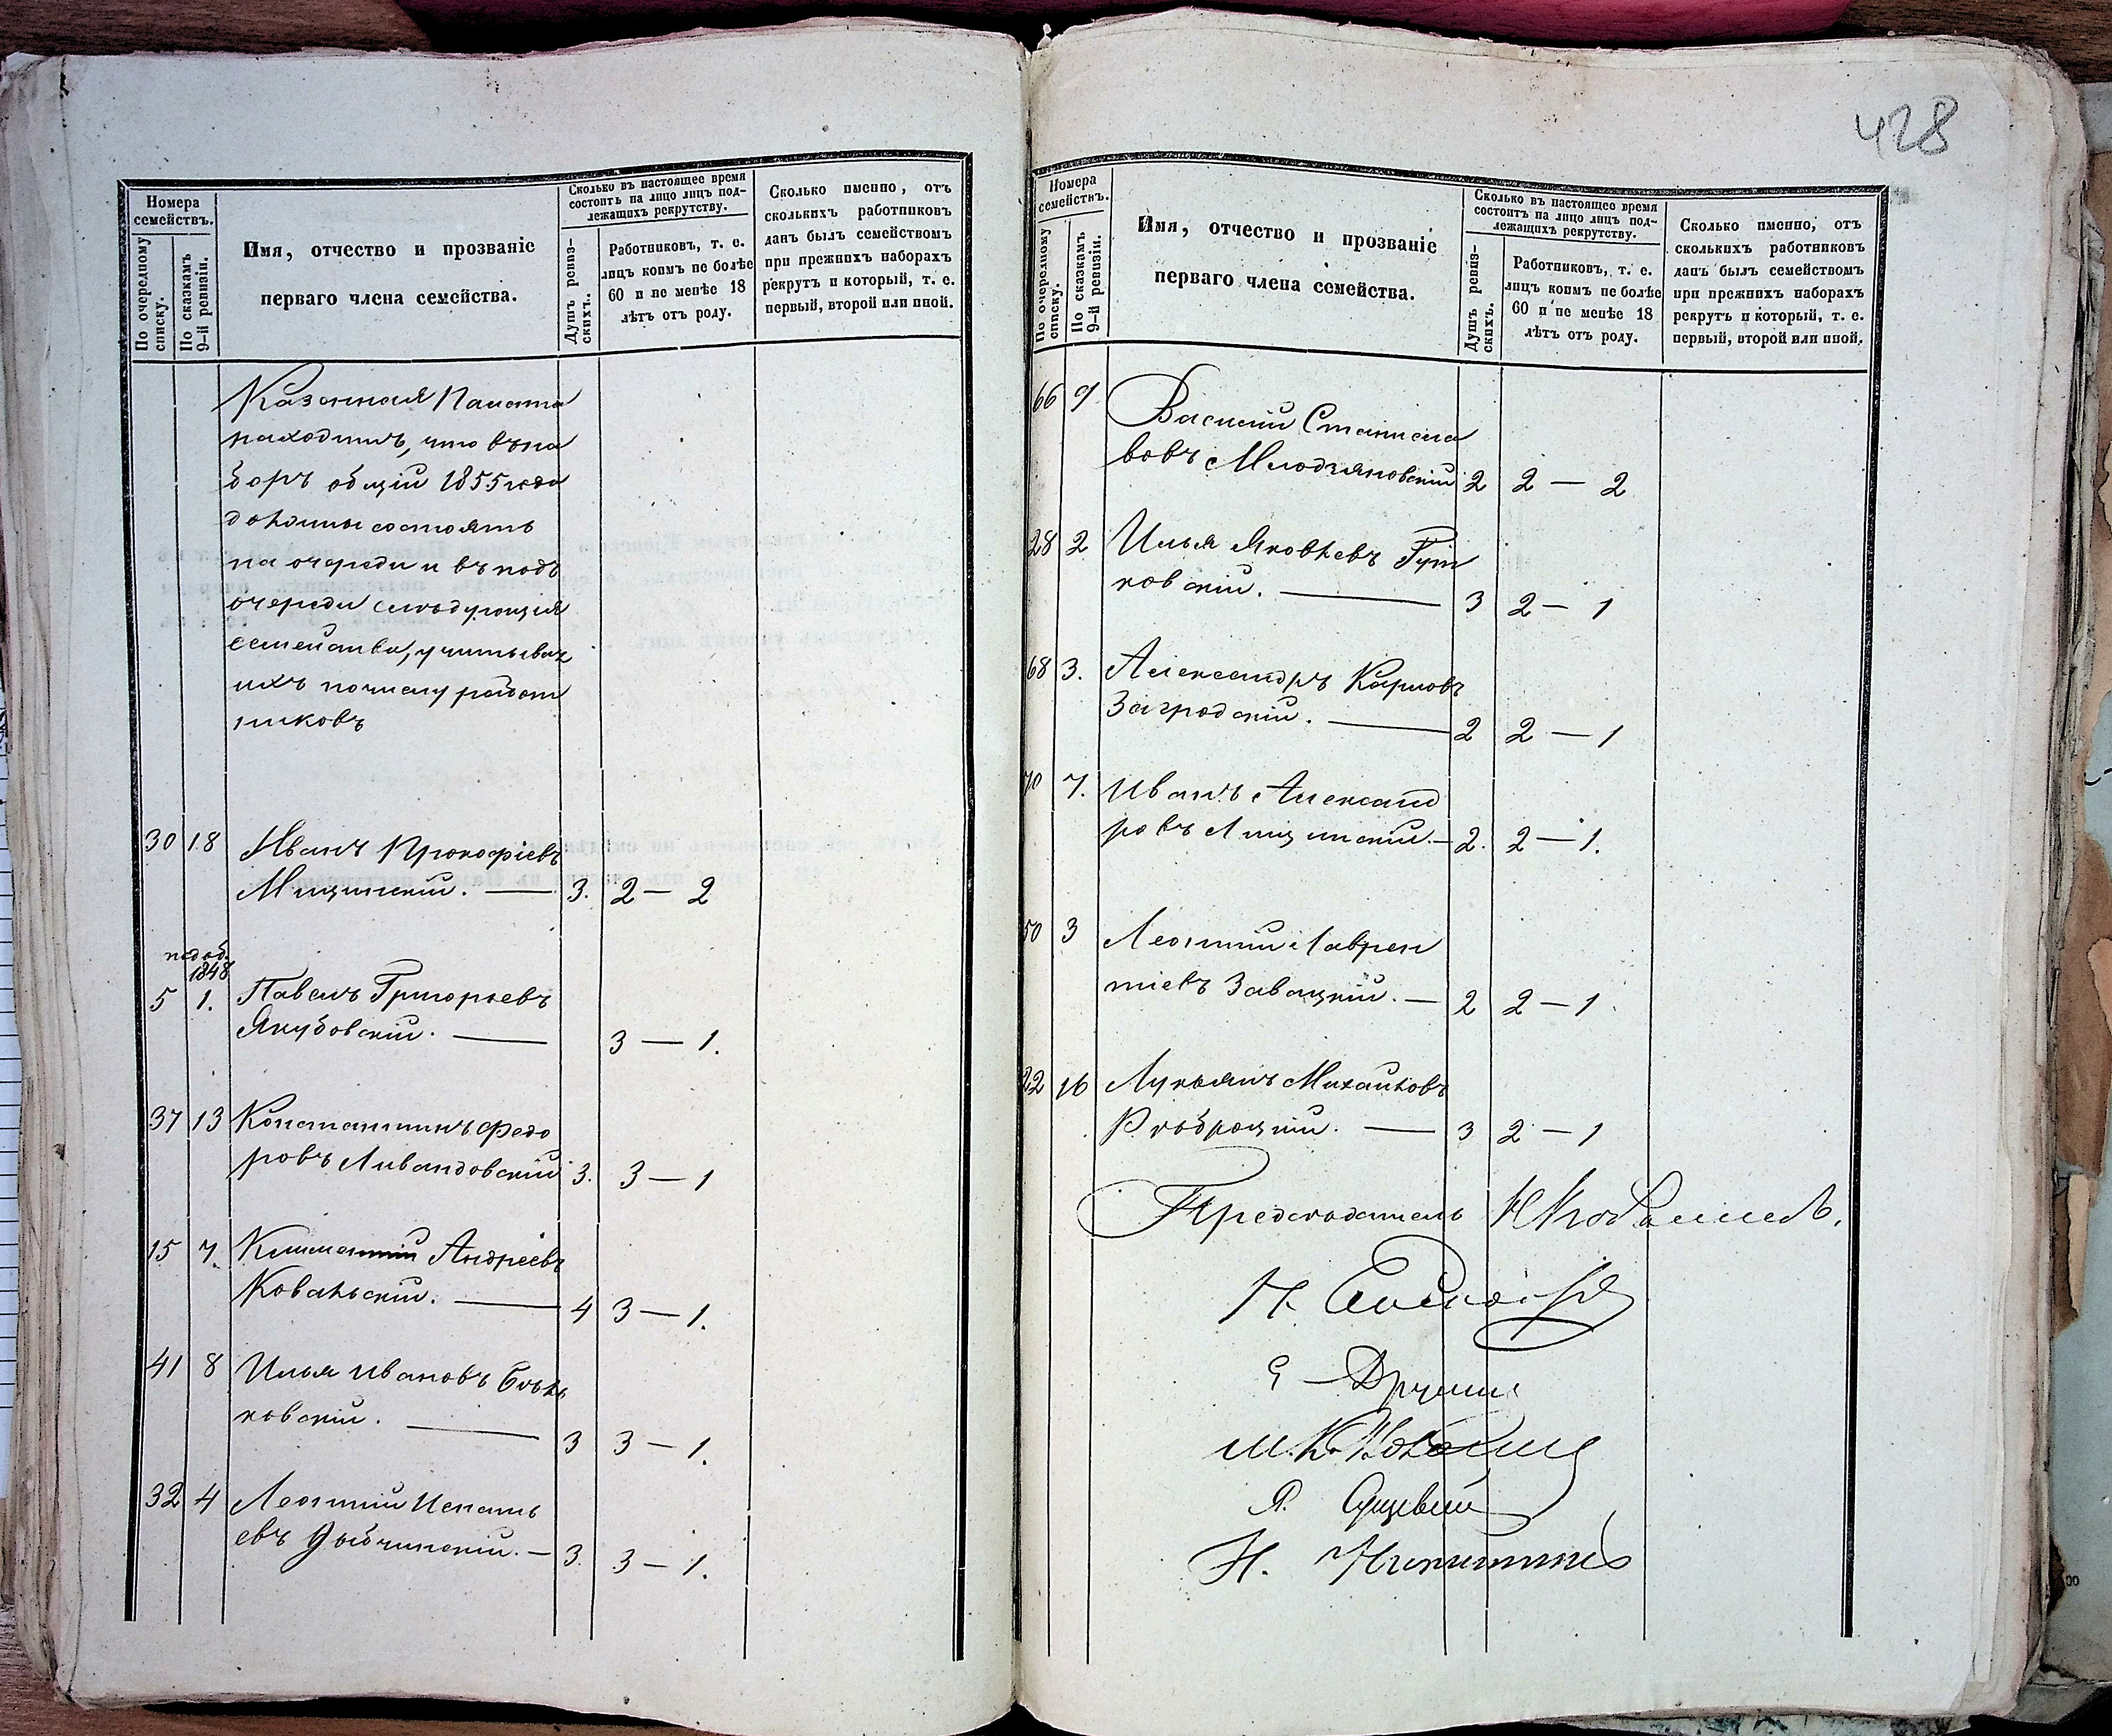 Номера
семействъ.
По очередному
списку.
По сказкамъ
9-й ревизіи.
Имя, отчество и прозваніе
перваго члена семейства.
Сколько въ настоящее время
состоитъ на лицо лицъ под-
лежащихъ рекрутству.
Душъ ревиз-
скихъ.
Работниковъ, т. е.
лицъ коимъ не болѣе
60 и не менѣе 18
лѣтъ отъ роду.
Сколько именно, отъ
сколькихъ работниковъ
данъ былъ семействомъ
при прежнихъ наборахъ
рекрутъ и который, т. е.
первый, второй или иной.
Казенная Палата
находитъ, что въ на
боръ общій 1855 года
должны состоять
на очереди и въ подъ
очереди слѣдующія
семейства, учитывая
ихъ по числу работ
никовъ
30 18 Иванъ Прокофіевъ
Мищинскій. — 3. 2 — 2
1848
5 1. Павелъ Григорьевъ
Якубовскій. — 3 — 1.
37 13 Константинъ Федо
ровъ Ливандовскій 3. 3 — 1
15 7. Климентій Андреевъ
Ковальскій. — 4 3 — 1.
41 8 Илья Ивановъ
ковскій. — 3 3 — 1.
32 4 Леонтій Игнать
евъ — 3. 3 — 1.
428
Номера
семействъ.
По очередному
списку.
По сказкамъ
9-й ревизіи.
Имя, отчество и прозваніе
перваго члена семейства.
Сколько въ настоящее время
состоитъ на лицо лицъ под-
лежащихъ рекрутству.
Душъ ревиз-
скихъ.
Работниковъ, т. е.
лицъ коимъ не болѣе
60 и не менѣе 18
лѣтъ отъ роду.
Сколько именно, отъ
сколькихъ работниковъ
данъ былъ семействомъ
при прежнихъ наборахъ
рекрутъ и который, т. е.
первый, второй или иной.
66 9 Василій Станисла
вовъ Млодзяновскій 2 2 — 2
28 2 Илья Яковлевъ Гут
ковскій. — 3 2 — 1
68 3. Александръ Карловъ
Загродскій. — 2 2 — 1
70 7. Иванъ Александ
ровъ — 2. 2 — 1.
50 3 Леонтій Лаврен
тіевъ Завацкій. — 2 2 — 1
22 16 Лукьянъ Михайловъ
— 3 2 — 1
Предсѣдатель
Н. Никитинъ